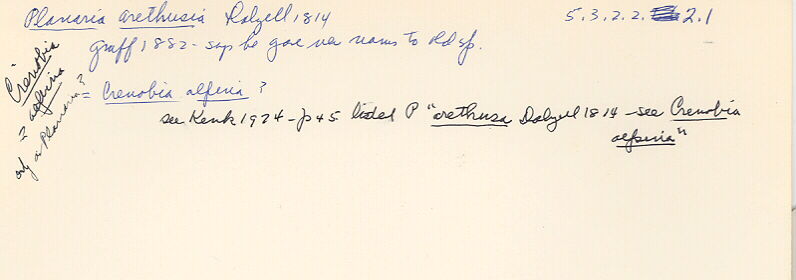 Planaria arethusia Dalyell 1814 5.3.2.2. 2.1
Graff 1882 - says he gave new names to old sp.
= Crenobia alpina ?
see Kenk 1974 - p 45 listed P "arethusa Dalyell 1814 - see Crenobia
alpina"
Crenobia
= alpina
a Planaria?